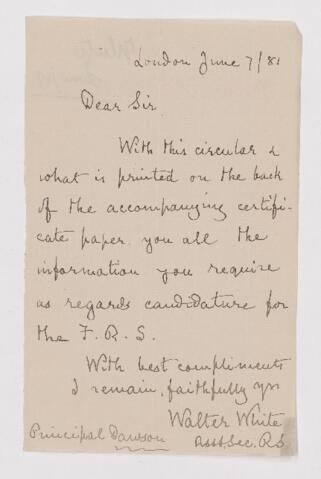 London June 7/81
Dear Sir
With this circular &
what is printed on the back
of the accompanying certifi-
cate paper you all the
information you require
as regards candidature for
the F. R. S.
With best compliments
I remain, faithfully yrs
Walter White
Asst. Sec. RS
Principal Dawson